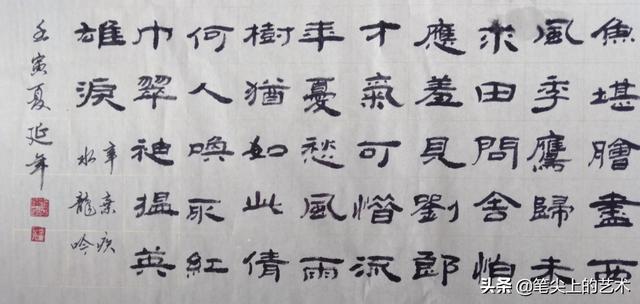 魚堪膾盡西
風季鷹歸未
求田問舍怕
應羞見劉郎
才氣可惜流
年憂愁風雨
樹猶如此倩
何人喚取紅
巾翠袖揾英
雄淚
辛棄疾
水龍吟
壬寅夏延年
头条 @笔尖上的艺术